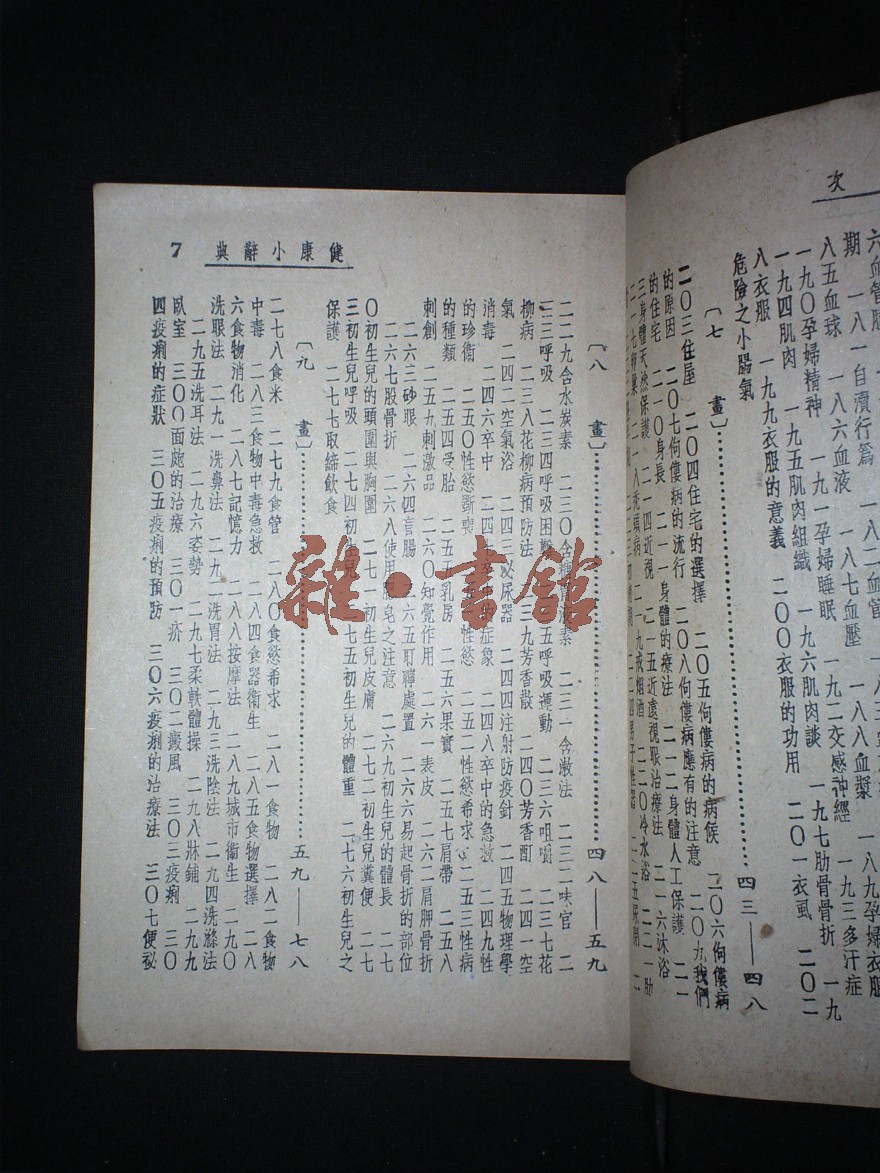 次
六血管
期 一八一自瀆行為 一八二血管
八五血球 一八六血液 一八七血壓 一八八血漿
一九〇孕婦精神 一九一孕婦睡眠 一九二交感神經 一九三多汗症
一九四肌肉 一九五肌肉組織 一九六肌肉談 一九七肋骨骨折 一九
八衣服 一九九衣服的意義 二〇〇衣服的功用 二〇一衣虱 二〇二
危險之小腸氣
〔七 畫〕 四三——四八
二〇三住屋 二〇四住宅的選擇 二〇五佝僂病的病候 二〇六佝僂病
的原因 二〇七佝僂病的流行 二〇八佝僂病應有的注意 二〇九我們
的住宅 二一〇身長 二一一身體的療法 二一二身體人工保護 二一
三身體天然保護 二一四近視 二一五近遠視眼治療法 二一六沐浴
二一七卵巢 二一八禿頭病 二一九戒烟酒 二二〇冷水浴 二二一肋
健康小辭典 7
〔八 畫〕 四八——五九
二二九含水炭素 二三〇含 素 二三一含漱法 二三二味官 二
三三呼吸 二三四呼吸困難 五呼吸運動 二三六咀嚼 二三七花
柳病 二三八花柳病預防法 三九芳香散 二四〇芳香酊 二四一空
氣 二四二空氣浴 二四三泌尿器 二四四注射防疫針 二四五物理學
消毒 二四六卒中 二四 症象 二四八卒中的急救 二四九性
的珍衛 二五〇性慾斲喪 二五 性慾 二五二性慾希求 二五三性病
的種類 二五四受胎 二五五乳房 二五六果實 二五七肩帶 二五八
刺創 二五九刺激品 二六〇知覺作用 二六一表皮 二六二肩胛骨折
二六三砂眼 二六四盲腸 二六五耵聹處置 二六六易起骨折的部位
二六七股骨折 二六八使用 皂之注意 二六九初生兒的體長 二七
〇初生兒的頭圍與胸圍 二七一初生兒皮膚 二七二初生兒糞便 二七
三初生兒呼吸 二七四初生兒 七五初生兒的體重 二七六初生兒之
保護 二七七取締飲食
〔九 畫〕 五九——七八
二七八食米 二七九食管 二八〇食慾希求 二八一食物 二八二食物
中毒 二八三食物中毒急救 二八四食器衛生 二八五食物選擇 二八
六食物消化 二八七記憶力 二八八按摩法 二八九城市衛生 二九〇
洗眼法 二九一洗鼻法 二九二洗胃法 二九三洗陰法 二九四洗滌法
二九五洗耳法 二九六姿勢 二九七柔軟體操 二九八牀鋪 二九九
臥室 三〇〇面皰的治療 三〇一疥 三〇二癜風 三〇三疫痢 三〇
四疫痢的症狀 三〇五疫痢的預防 三〇六疫痢的治療法 三〇七便祕
雜·書館